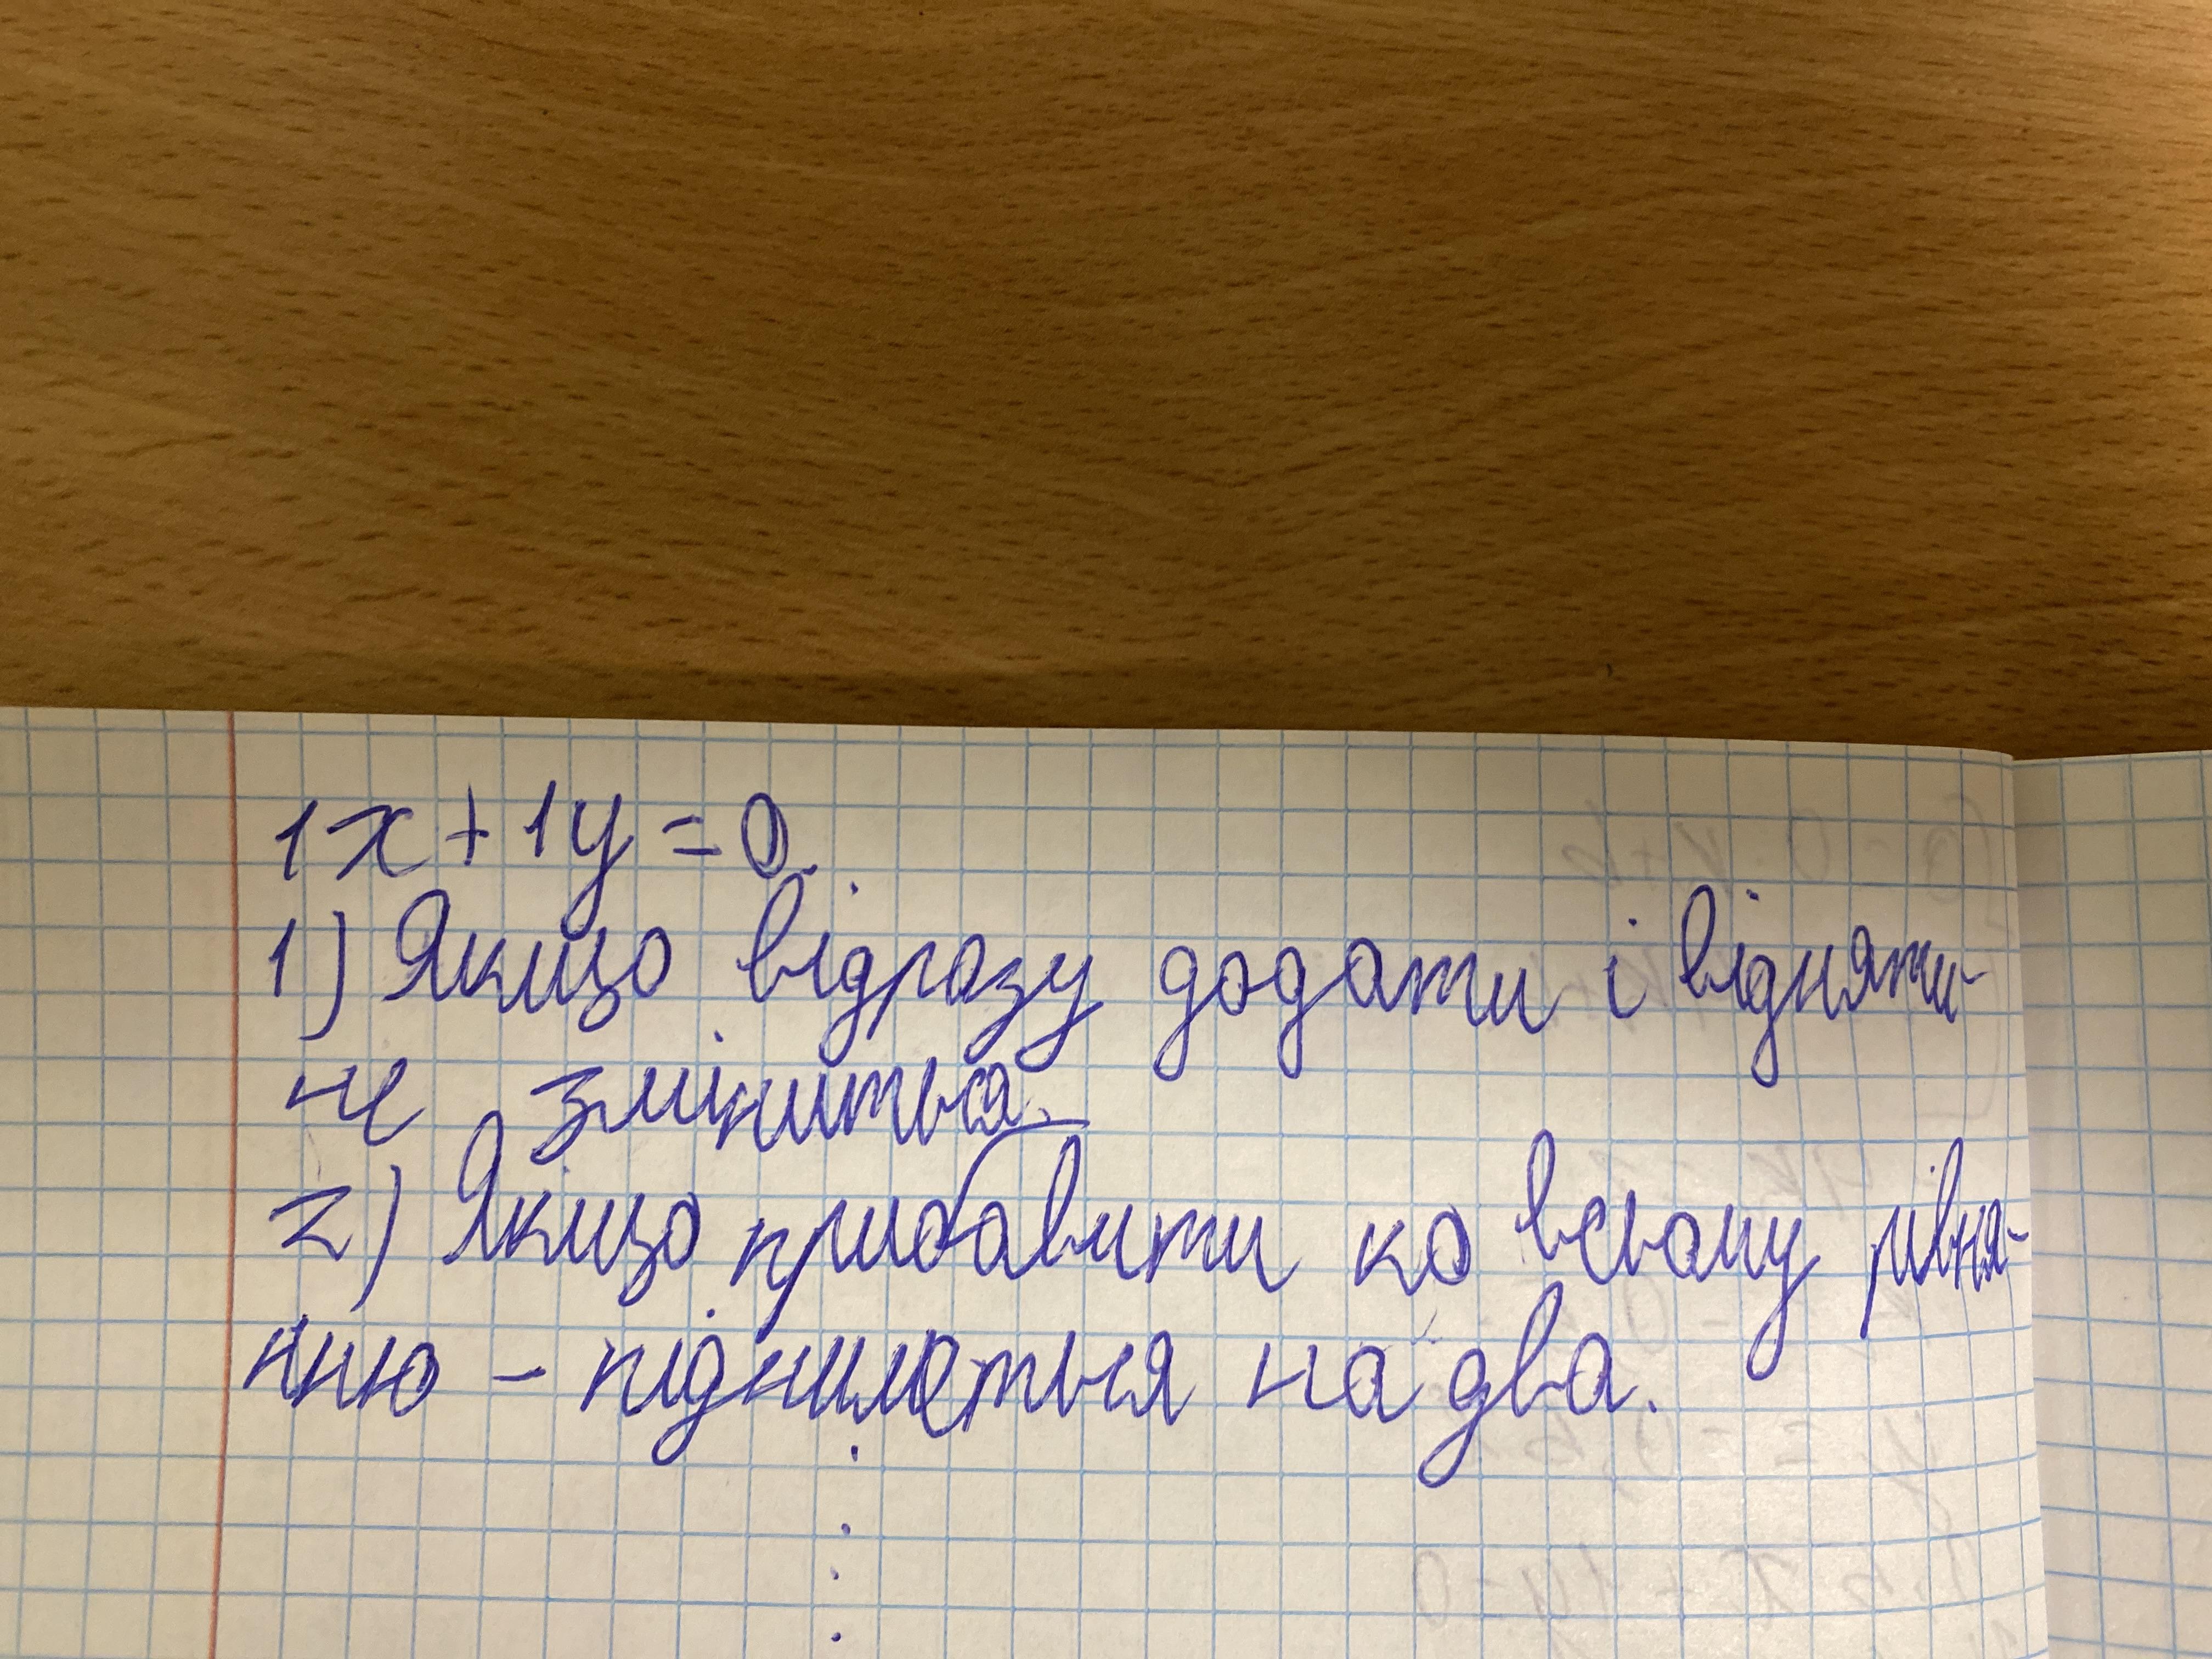 1x+1y=0.
1) Якщо відразу додати і відняти-
не зміниться.
2) Якщо прибавити ко всьому рівня-
нню - підниметься на два.